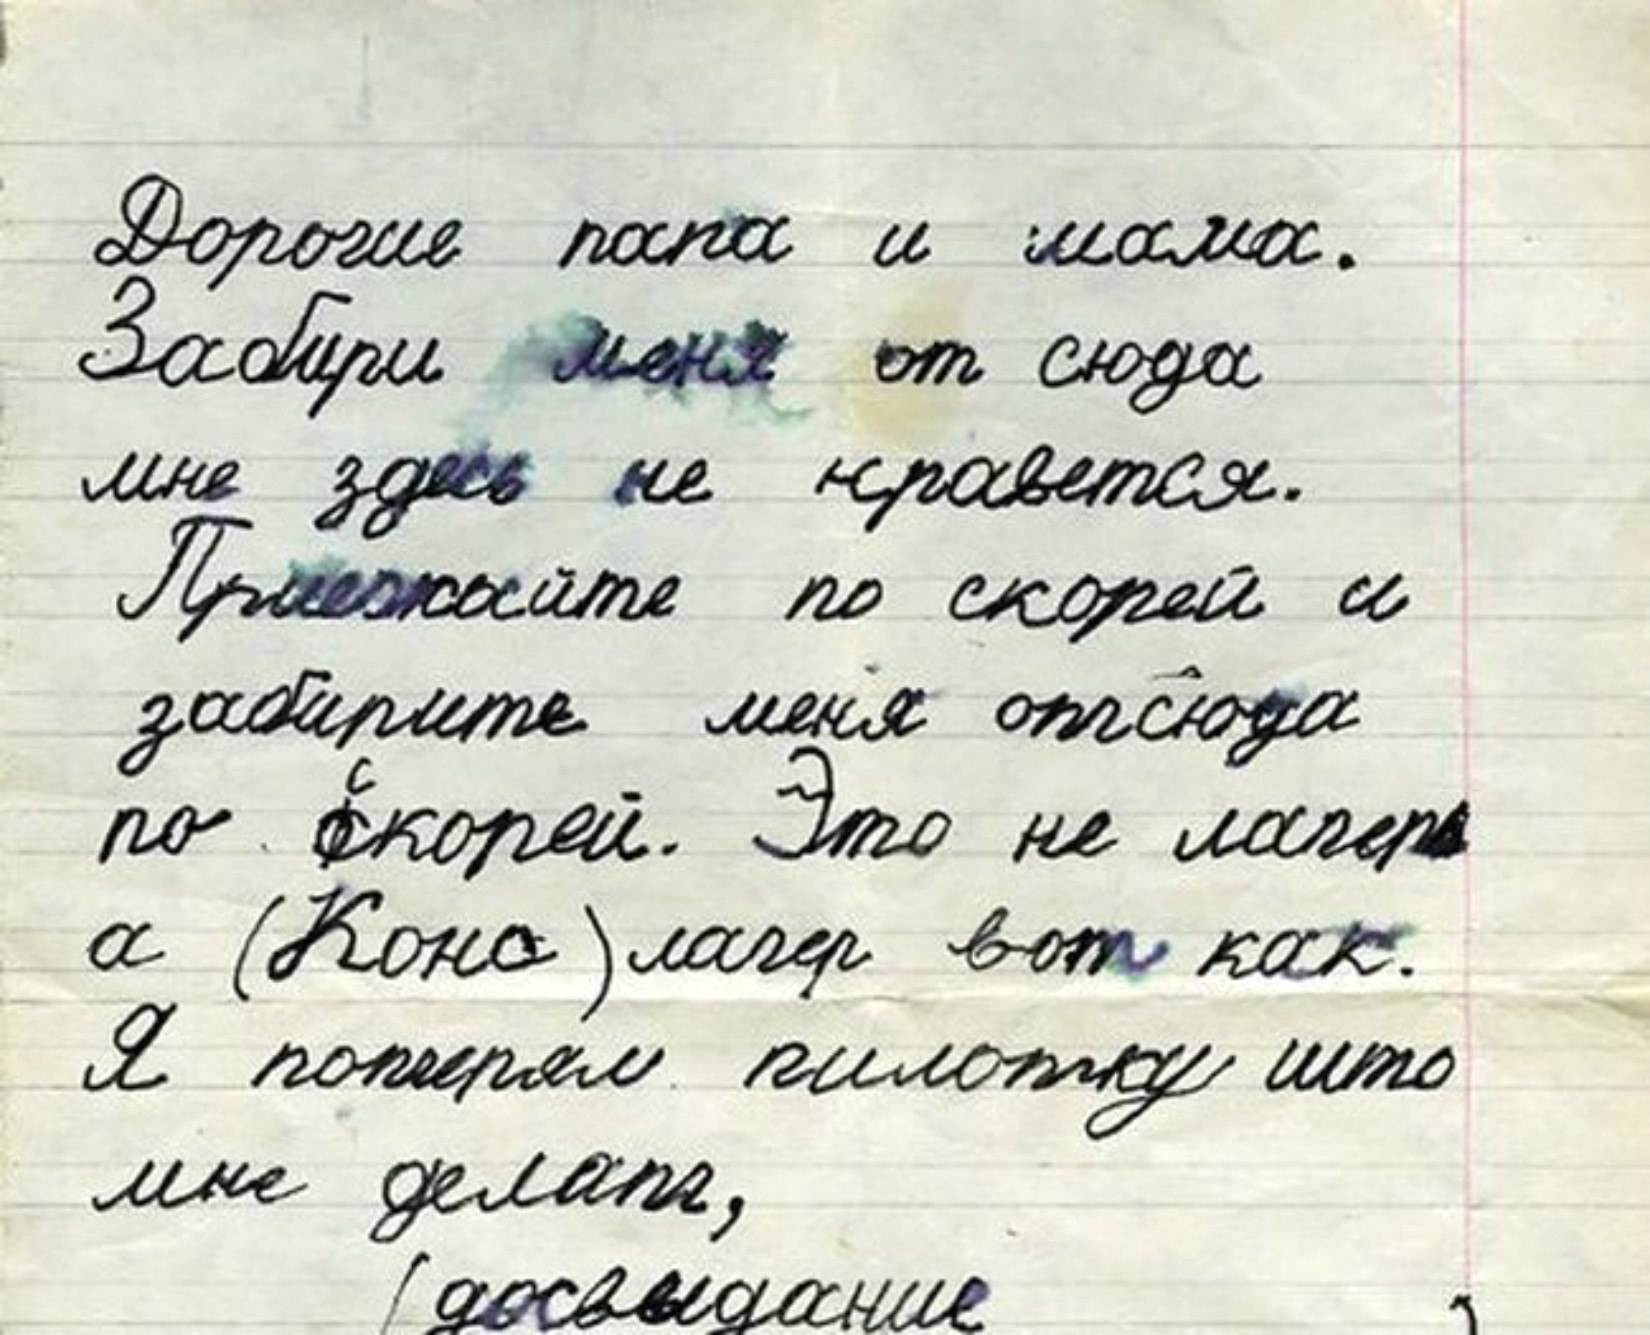 Дорогие папа и мама.
Забири меня от сюда
мне здесь не нраветса.
Приезжайте по скорей и
забирите меня отсюда
по скорей. Это не лагерь
а (Конс) лагер вот как.
Я потерял пилотку што
мне делать,
(досвыдание